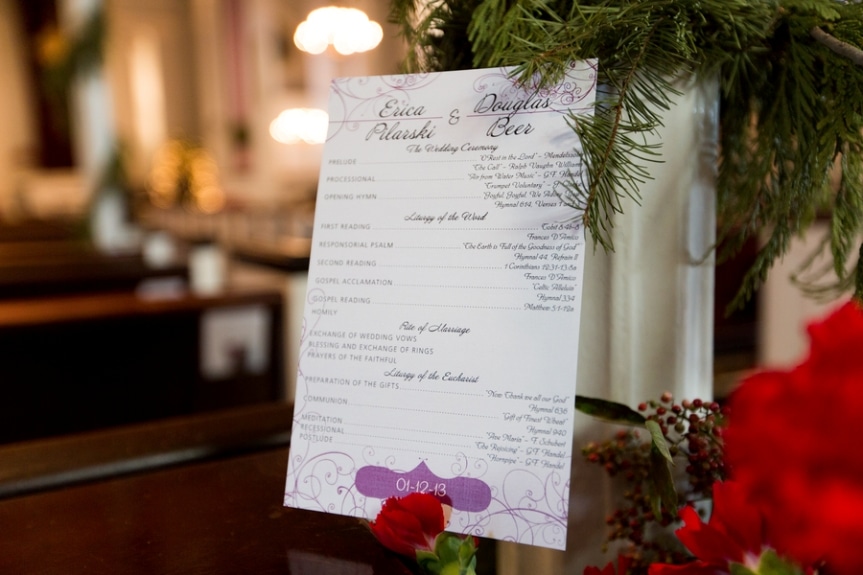 Erica & Douglas
Pilarski Beer
The Wedding Ceremony
PRELUDE "O Rest in the Lord" - Mendelssohn
"The Call" - Ralph Vaughn Williams
PROCESSIONAL "Air from Water Music" - G.F. Handel
"Trumpet Voluntary" -
OPENING HYMN "Joyful, Joyful, We Adore
Hymnal 614, Verses 1
Liturgy of the Word
FIRST READING Tobit 8:4b-8
Frances D'Amico
RESPONSORIAL PSALM "The Earth is Full of the Goodness of God"
Hymnal 44, Refrain II
SECOND READING 1 Corinthians 12:31-13:8a
Frances D'Amico
GOSPEL ACCLAMATION "Celtic Alleluia"
Hymnal 334
GOSPEL READING Matthew 5:1-12a
HOMILY
Rite of Marriage
EXCHANGE OF WEDDING VOWS
BLESSING AND EXCHANGE OF RINGS
PRAYERS OF THE FAITHFUL
Liturgy of the Eucharist
PREPARATION OF THE GIFTS "Now Thank me all our God"
Hymnal 636
COMMUNION "Gift of Finest Wheat"
Hymnal 940
MEDITATION "Ave Maria" - F. Schubert
RECESSIONAL "The Rejoicing" - G.F. Handel
POSTLUDE "Hornpipe" - G.F. Handel
01-12-13